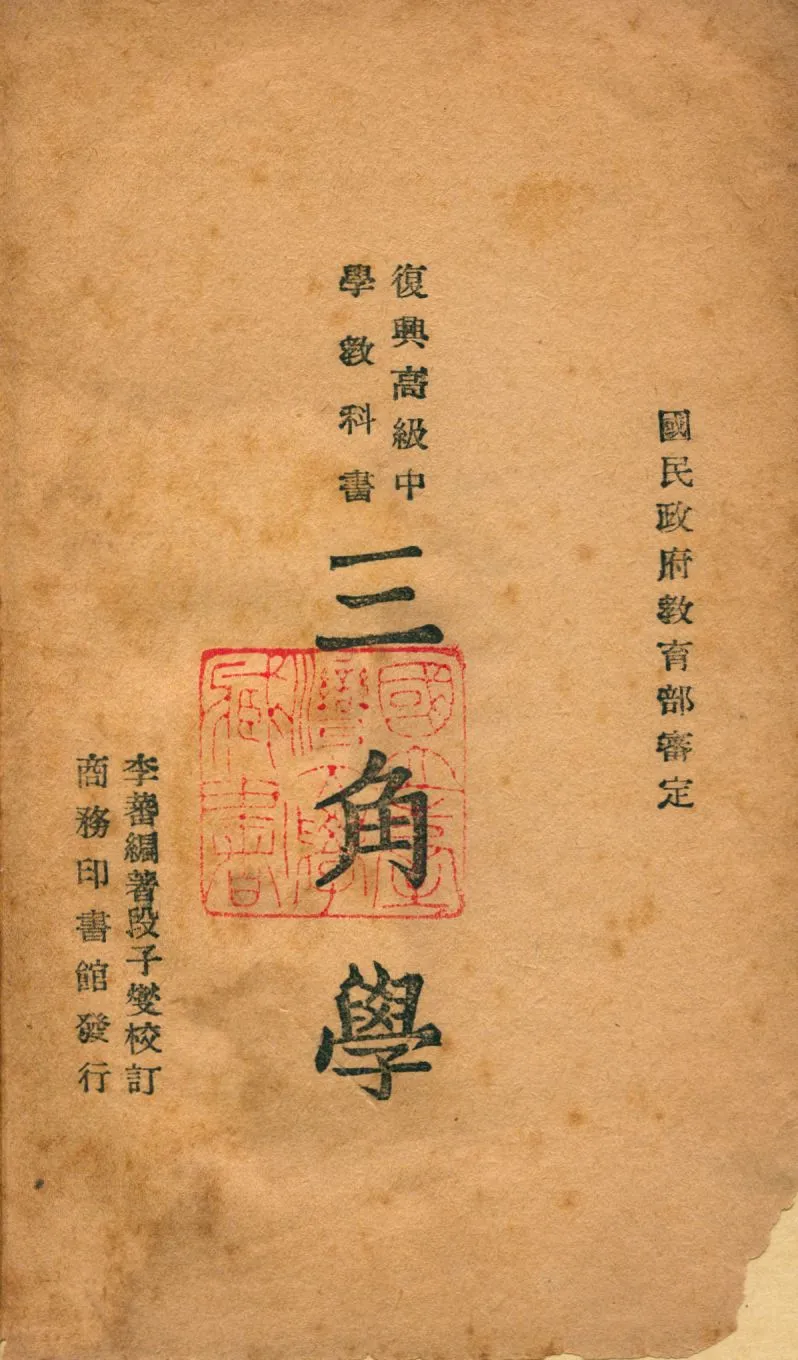 國民政府教育部審定
復興高級中
學教科書
三角學
李蕃編著段子燮校訂
商務印書館發行
國立臺
灣大學
藏書